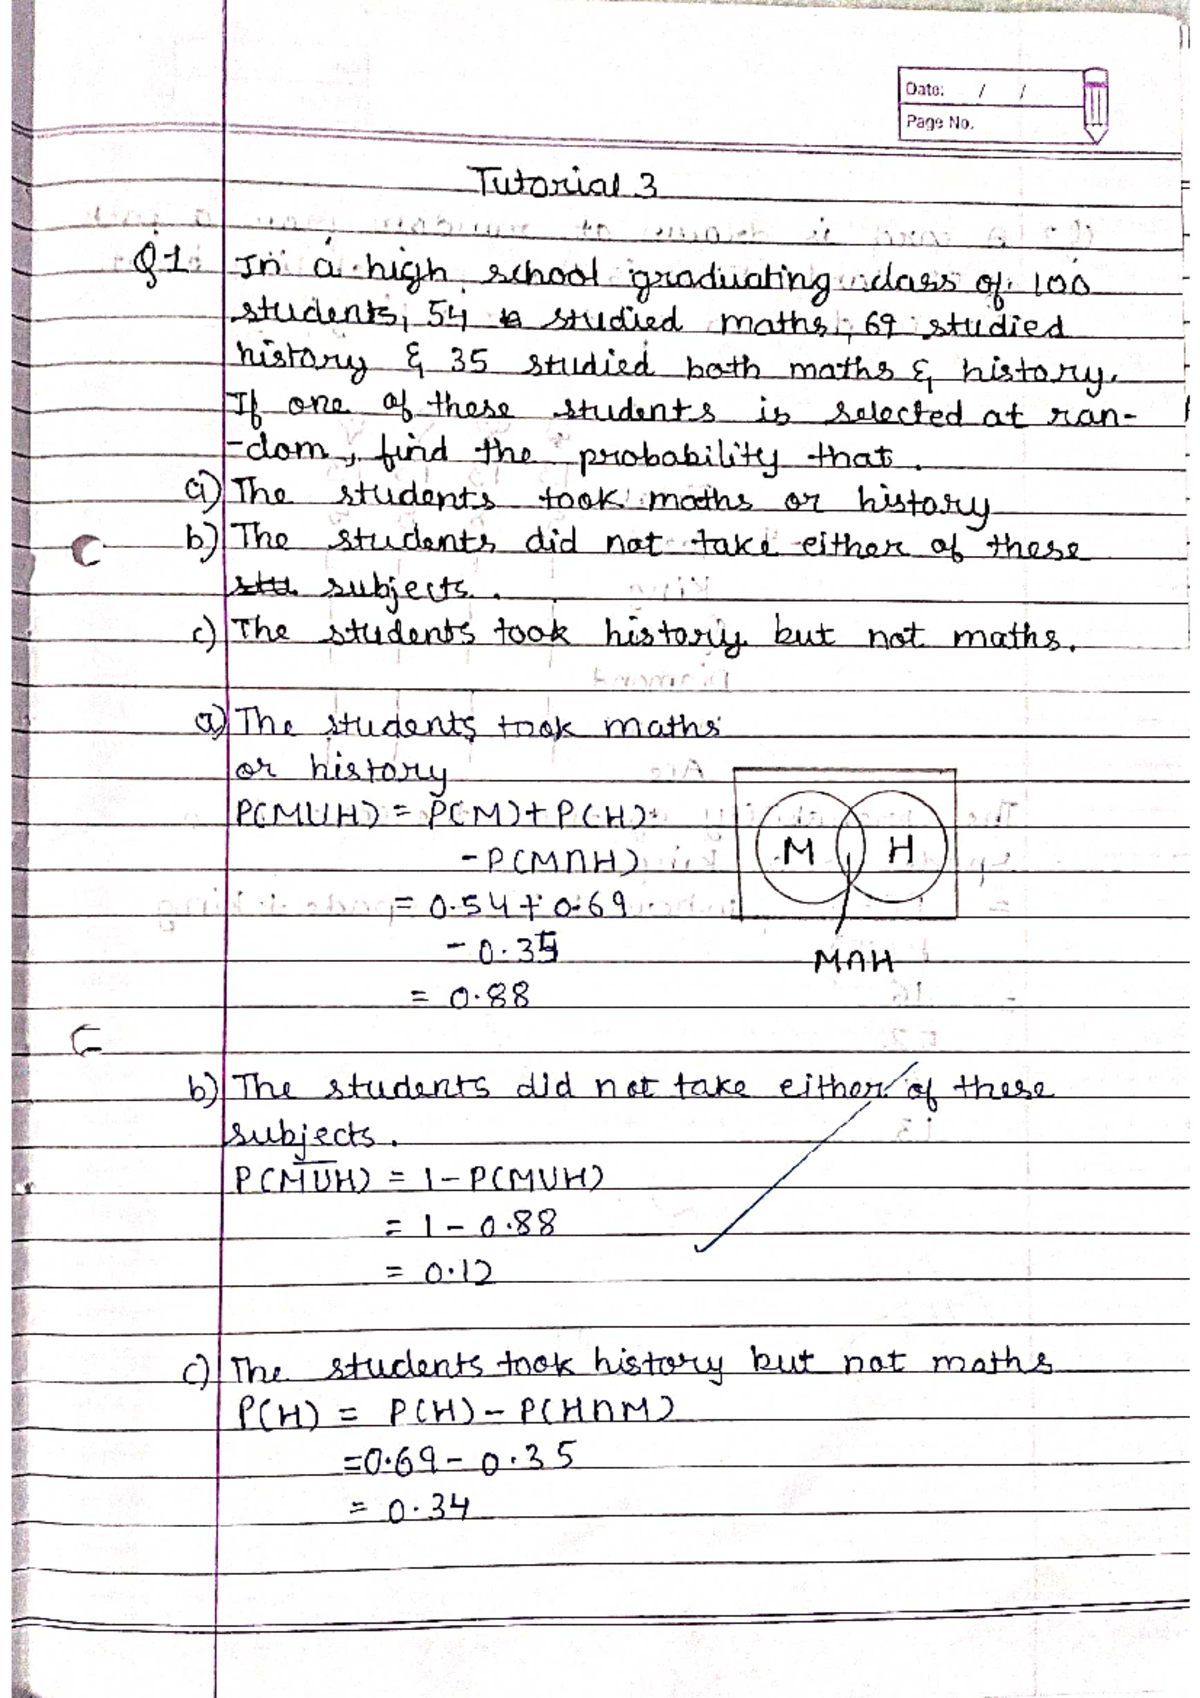 Date: / /
Page No.
Tutorial 3
Q1. In a high school graduating class of 100
students, 54 studied maths, 69 studied
history & 35 studied both maths & history.
If one of these students is selected at ran-
-dom, find the probability that.
a) The students took maths or history
b) The students did not take either of these
subjects.
c) The students took history but not maths.
a) The students took maths
or history
P(MUH) = P(M)+P(H)
-P(M∩H)
= 0.54 + 0.69
- 0.35
= 0.88
M H
M∩H
b) The students did not take either of these
subjects.
P(M̅U̅H̅) = 1-P(MUH)
= 1 - 0.88
= 0.12
c) The students took history but not maths
P(H) = P(H) - P(H∩M)
=0.69 - 0.35
= 0.34